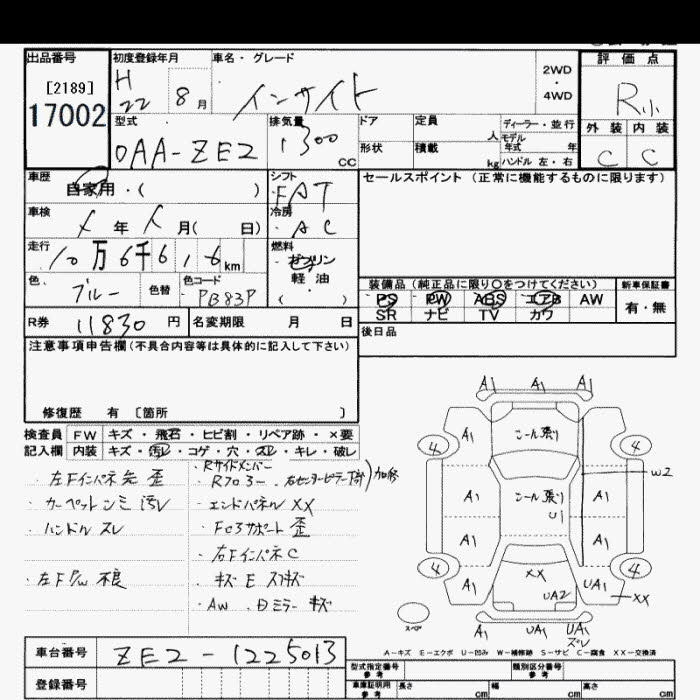 出品番号
[2189]
17002
初度登録年月
H
22 8 月
車名・グレード
インサイト
2WD
・
4WD
評価点
R小
外装 内装
C C
型式
DAA-ZE2
排気量
1300
CC
ドア
形状
定員
人
積載
kg
ディーラー・並行
モデル
年式 年
ハンドル 左・右
車歴
自家用・( )
シフト
FAT
セールスポイント(正常に機能するものに限ります)
車検
年 月( 日)
冷房
AC
走行
10万6千616km
燃料
ガソリン
軽油
・
( )
色
ブルー
色替
色コード
PB83P
装備品(純正品に限り〇をつけてください)
PS PW ABS エアB AW
SR ナビ TV カワ
新車保証書
有・無
R券 11830 円
名変期限 月 日
後日品
注意事項申告欄(不具合内容等は具体的に記入して下さい)
修復歴 有 〔箇所 〕
検査員 FW キズ・飛石・ヒビ割・リペア跡・×要
記入欄 内装 キズ・汚レ・コゲ・穴・スレ・キレ・破レ
・左Fインパネ先 歪
・カーペットシミ 汚レ
・ハンドル スレ
・左F P/W 不良
・Rサイドメンバー
・Rフロアー
・エンドパネル XX
・Fコアサポート 歪
・右FインパネC
・キズ E スアキズ
・AW 日ミラー キズ
A1 A1 A1
4 A1 コール張り A1 4
W2
A1 コール張り A1
U1
A1 A1
4 A1 XX UA1 4
UA2 XX
スペア
A1 UA1 UA1
ズレ
A-キズ E-エクボ U-凹み W-補修跡 S-サビ C-腐食 XX-交換済
車台番号 ZE2-1225013
登録番号
型式指定番号
参考
類別区分番号
参考
車庫証明用
参考
長さ cm 幅 cm 高さ cm